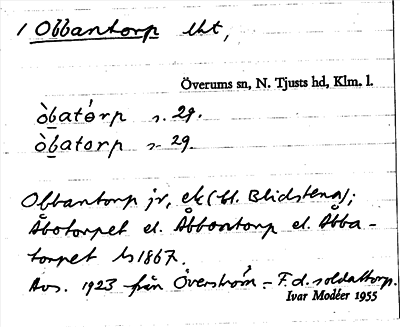 1 Obbantorp lht,
Överums sn, N. Tjusts hd, Klm. l.
òbatórp s. 29.
òbatorp s. 29.
Obbantorp jr, ek (bl. Blidstena);
Åbotorpet el. Åbbantorp el. Åbba-
torpet hs 1867.
Avs. 1923 från Överström – F.d. soldattorp.
Ivar Modéer 1955